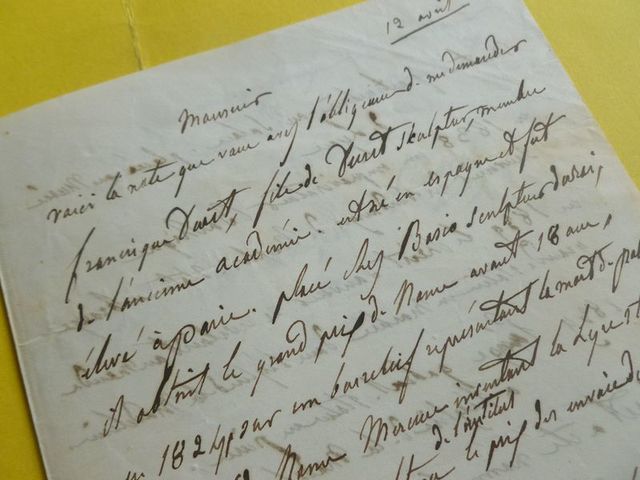 12 avril
Monsieur
voici la note que vous avez l'obligeance de me demander
francisque Duret, fils de Duret sculpteur, membre
de l'ancienne académie. est né en espagne et fut
élevé à paris. placé chez Bosio sculpteur du roi,
il obtint le grand prix de Rome avant 18 ans,
en 1824 sur un bas relief représentant la mort de
Rome Mercure inventant la Lyre et
de l'institut
le prix des envois de